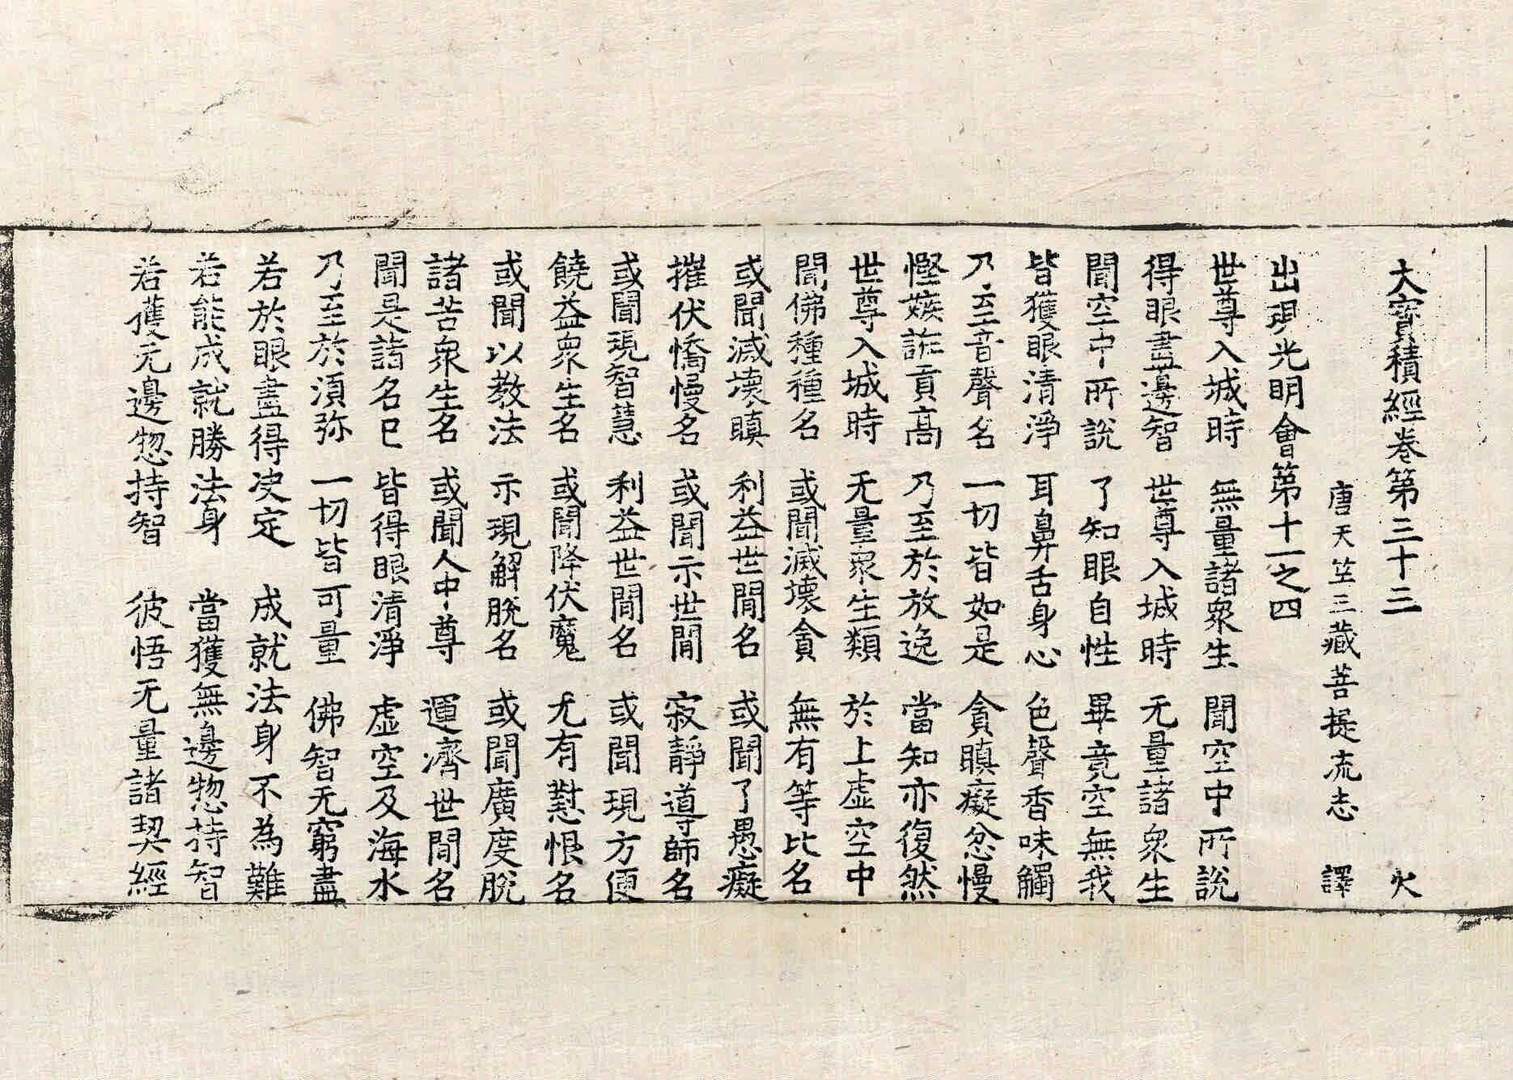 大寶積經卷第三十三　火
唐天竺三藏菩提流志　譯
出現光明會第十一之四
世尊入城時　無量諸衆生　聞空中所說
得眼盡邊智　世尊入城時　无量諸衆生
聞空中所說　了知眼自性　畢竟空無我
皆獲眼清淨　耳鼻舌身心　色聲香味觸
乃至音聲名　一切皆如是　貪瞋癡忿慢
慳嫉誑貢高　乃至於放逸　當知亦復然
世尊入城時　无量衆生類　於上虛空中
聞佛種種名　或聞滅壞貪　無有等比名
或聞滅壞瞋　利益世閒名　或聞了愚癡
摧伏憍慢名　或聞示世閒　寂靜導師名
或聞現智慧　利益世閒名　或聞現方便
饒益衆生名　或聞降伏魔　尤有懟恨名
或聞以教法　示現解脫名　或聞廣度脫
諸苦衆生名　或聞人中尊　運濟世閒名
聞是諸名已　皆得眼清淨　虛空及海水
乃至於須弥　一切皆可量　佛智无窮盡
若於眼盡得決定　成就法身不為難
若能成就勝法身　當獲無邊惣持智
若獲无邊惣持智　彼悟无量諸契經